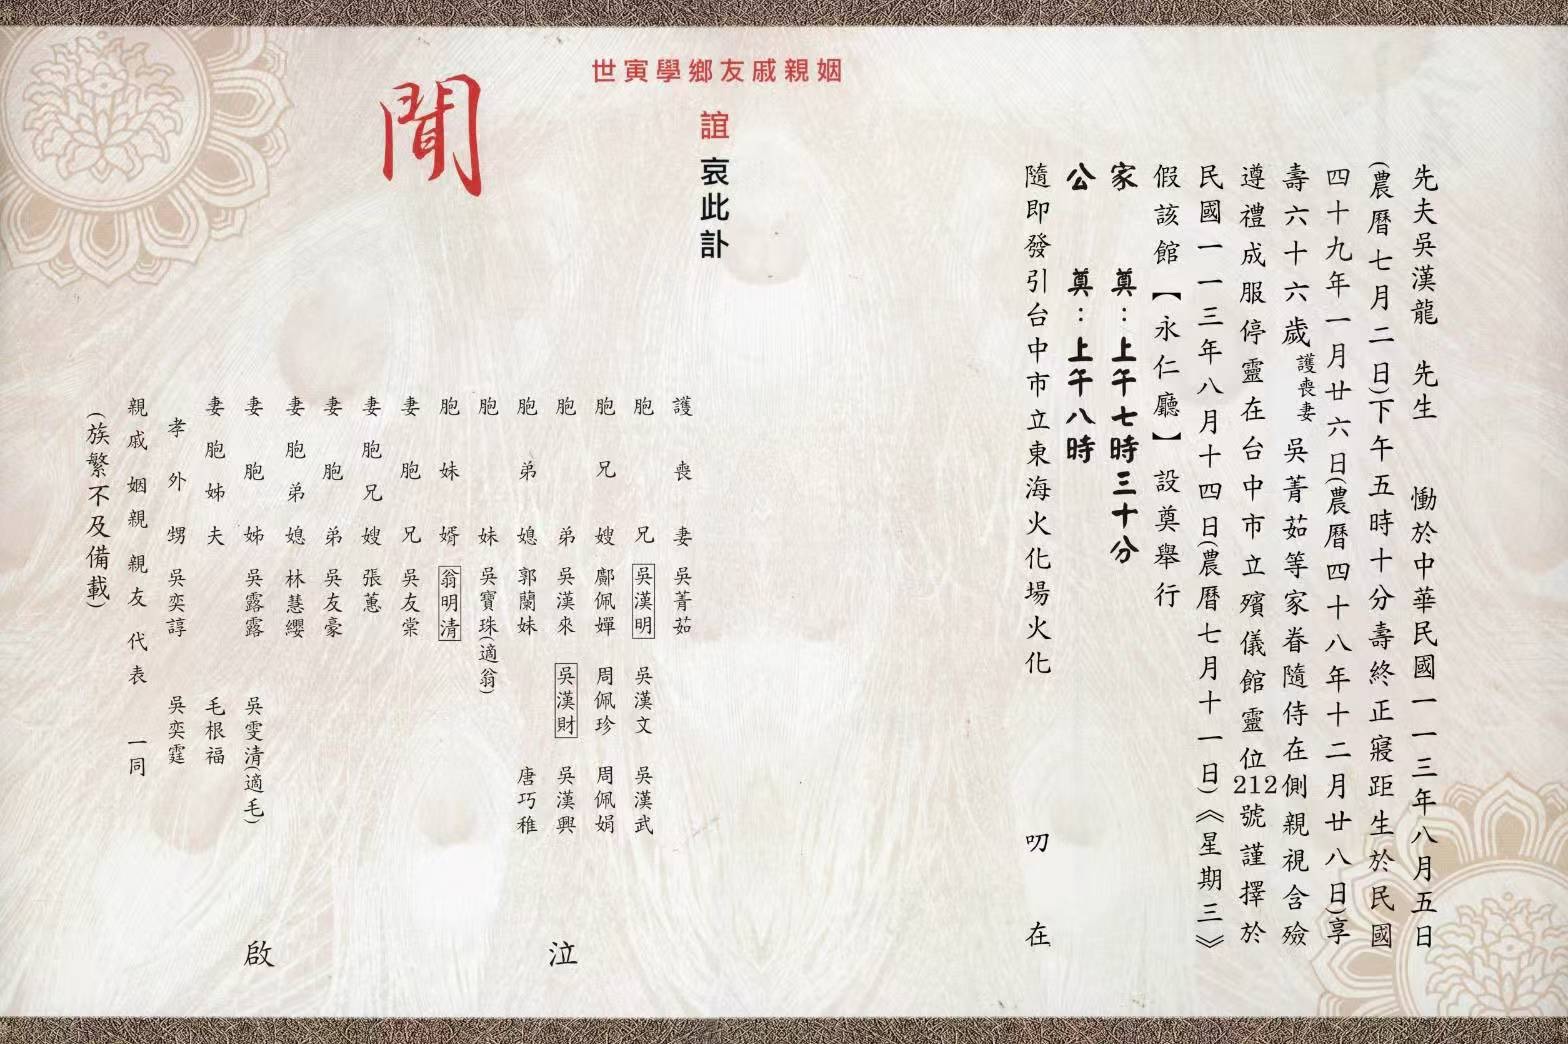 先夫吳漢龍 先生 慟於中華民國一一三年八月五日
(農曆七月二日)下午五時十分壽終正寢距生於民國
四十九年一月廿六日(農曆四十八年十二月廿八日)享
壽六十六歲護喪妻 吳菁茹等家眷隨侍在側親視含殮
遵禮成服停靈在台中市立殯儀館靈位212號謹擇於
民國一一三年八月十四日(農曆七月十一日)《星期三》
假該館【永仁廳】設奠舉行
家 奠：上午七時三十分
公 奠：上午八時
隨即發引台中市立東海火化場火化 叨 在
姻親戚友鄉學寅世
誼 哀此訃
聞
護喪妻 吳菁茹
胞兄 吳漢明 吳漢文 吳漢武
胞兄嫂 鄺佩嬋 周佩珍 周佩娟
胞弟 吳漢來 吳漢財 吳漢興
胞弟媳 郭蘭妹 唐巧稚
胞妹 吳寶珠(適翁)
胞妹婿 翁明清
妻胞兄 吳友棠
妻胞兄嫂 張蕙
妻胞弟 吳友豪
妻胞弟媳 林慧纓
妻胞姊 吳露露 吳雯清(適毛)
妻胞姊夫 毛根福
孝外甥 吳奕諄 吳奕霆
親戚姻親親友代表 一同
(族繁不及備載)
泣
啟